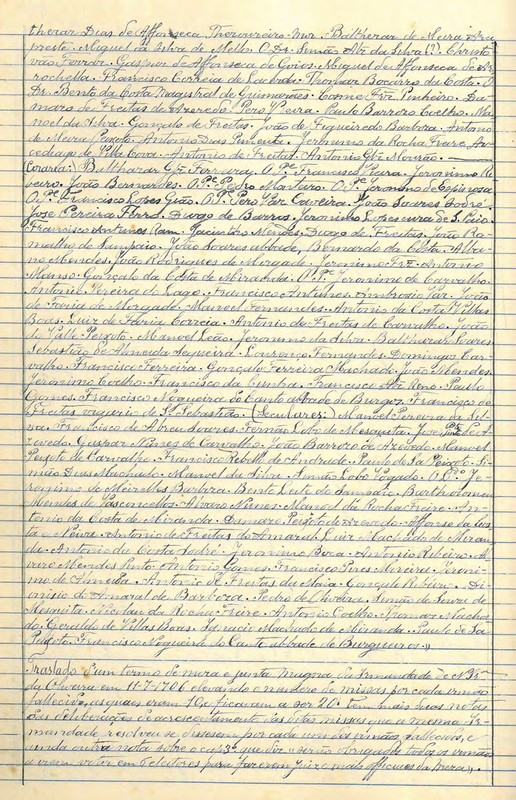 thezar Dias de Affonseca Thezoureiro-mor. Balthezar de Meira Ara
preste. Miguel da Silva de Mello. O Dr. Simão Alz da Silva (?). Christo
vão Ferrar. Gaspar de Affonseca de Goios. Miguel de Affonseca de Ar
rochella. Francisco Correia de Lacerda. Thomaz Bocarro da Costa. O
Dr. Bento da Costa Magistral de Guimarães. Cosme Frz Pinheiro. Da
maso de Freitas de Azeredo. Pero Vieira. Paulo Barrozo Coelho. Ma
noel da Silva. Gonçalo de Freitas. João de Figueiredo Barboza. Antonio
de Meira Peixoto. Antonio Dias Pimenta. Jeronimo da Rocha Freire Ar
cediago de Villa Cova. Antonio de Freitas. Antonio Glz Mourão.
(Coraria) Balthazar Glz Ferraz. O Pe Francisco Jeura. Jeronimo Ri
beiro. João Bernardes. O Pe Pedro Monteiro. O Pe Jeronimo de Espinosa
O Pe Francisco Lopes Gião. O Pe Pero Vaz Caveira. João Soares Sodré.
José Pereira Ferrs. Diogo de Barros. Jeronimo Lopes cura de S. Paio.
Francisco Antunes Ram. Jacintho Mendes. Diogo de Freitas. João Ra
malho de Sampaio. João Soares abbade, Bernardo da Costa. Alva
ro Mendes. João Rodrigues de Morgade. Jeronimo Frz. Antonio
Manso. Gonçalo da Costa de Miranda. O Pe Jeronimo de Carvalho.
Antonio Pereira do Lago. Francisco Antunes. Ambrosio Vaz. João
de Faria de Morgade. Manoel Fernandes. Antonio da Costa Villas
Boas. Luiz de Faria Correia. Antonio de Freitas de Carvalho. João
do Valle Peixoto. Manoel Leão. Jeronimo da Silva. Balthezar Soares
Sebastião de Almeida Sequeira. Lourenço Fernandes. Domingos Car
valho. Francisco Ferreira. Gonçalo Ferreira Machado. João Mendes.
Jeronimo Coelho. Francisco da Cunha. Francisco Alz Reno. Paulo
Gomes. Francisco Nogueira do Canto abbade de Burgos. Francisco de
Freitas vigario de S. Sebastião. (Seculares) Manoel Pereira da Sil
va. Francisco de Abreu Soares. Fernão Lobo de Mesquita. José Pto de A
zevedo. Gaspar Nunes de Carvalho. João Barrozo de Azevedo. Manoel
Peixoto de Carvalho. Francisco Rebello de Andrade. Paulo de Sá Peixoto. Si
mão Dias Machado. Manoel da Silva. Simão Lobo Togado. O Pe Je
ronimo de Meirelles Barboza. Bento Leite de Sampaio. Bartholomeu
Mendes de Vasconcellos. Alvaro Nunes. Manoel da Rocha Freire. An
tonio da Costa de Miranda. Damazo Peixoto de Azevedo. Affonso da Cos
ta Neiva. Antonio de Freitas do Amaral. Luiz Machado de Miran
da. Antonio da Costa Sodré. Jeronimo Boca. Antonio Ribeiro. Al
varo Mendes Pinto. Antonio Gomes. Francisco Paes Moreira. Jeroni
mo de Almeida. Antonio de Freitas da Maia. Gonçalo Ribeiro. Di
onisio do Amaral de Barboza. Pedro de Oliveira. Simão de Souza de
Mesquita. Nicolau da Rocha Freire. Antonio Coelho. Thomaz Macha
do. Geraldo de Villas Boas. Ignacio Machado de Miranda. Paulo de Sá
Peixoto. Francisco Nogueira do Canto abbade de Burgueiros.»
Traslado d'um termo de meza e junta magna da Irmandade de N. Sra
da Oliveira em 11-7-1706 elevando o numero de missas por cada irmão
fallecido, as quaes eram 10 e ficaram a ser 20. Tem mais duas notas
das deliberações de accrescentamento das ditas missas que a mesma Ir
mandade resolveu se dissessem por cada um dos irmãos fallecidos, e
ainda outra nota sobre o cap. 3º que diz «serão obrigados todos os irmãos
a virem votar em eleitores para fazerem Juiz e mais officiaes da Meza».